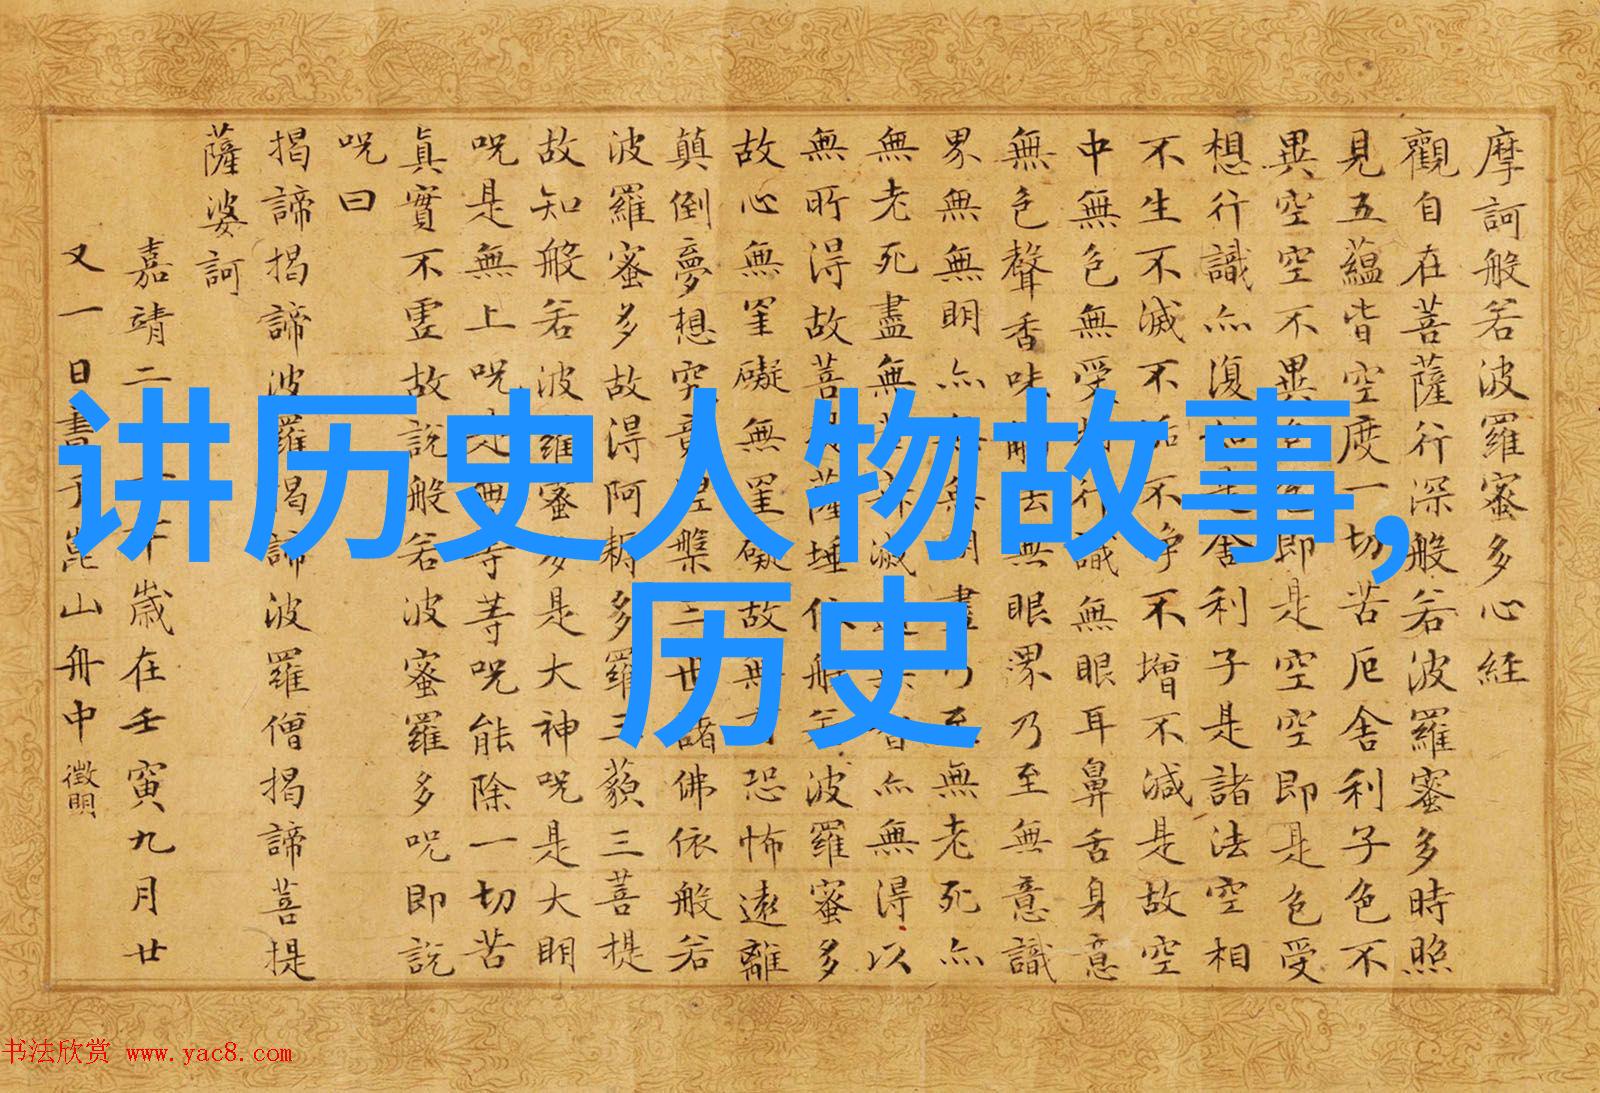 讲历史人物故事,
历史
摩訶般若波羅蜜多心経
觀自在菩薩行深般若波羅蜜多時照
見五蘊皆空度一切苦厄舍利子色不
異空空不異即是空空即是色受
想行識亦復是舍利子是諸法空相
不生不滅不垢不淨不增不減是故空
中無色無受行識無眼耳鼻舌身意
無色聲香味法無眼界乃至無意識
界無無明亦無無明盡乃至無老死亦
無老死盡無滅亦無得以
無所得故菩薩埵依般若波羅蜜多
故心無罣礙無罣礙故無有恐怖遠離
顛倒夢想究竟涅槃三世諸佛依般若
波羅蜜多故得阿耨多羅三藐三菩提
故知般若波羅蜜多是大神呪是大明
呪是無上呪是無等等呪能除一切苦
真實不虛故說般若波蜜羅多呪即說
呪曰
揭諦揭諦波羅揭諦波羅僧揭諦菩提
薩婆訶
嘉靖二十歲在壬寅九月廿
又一日書于崑山舟中 徵明
书法欣赏 www.yac8.com